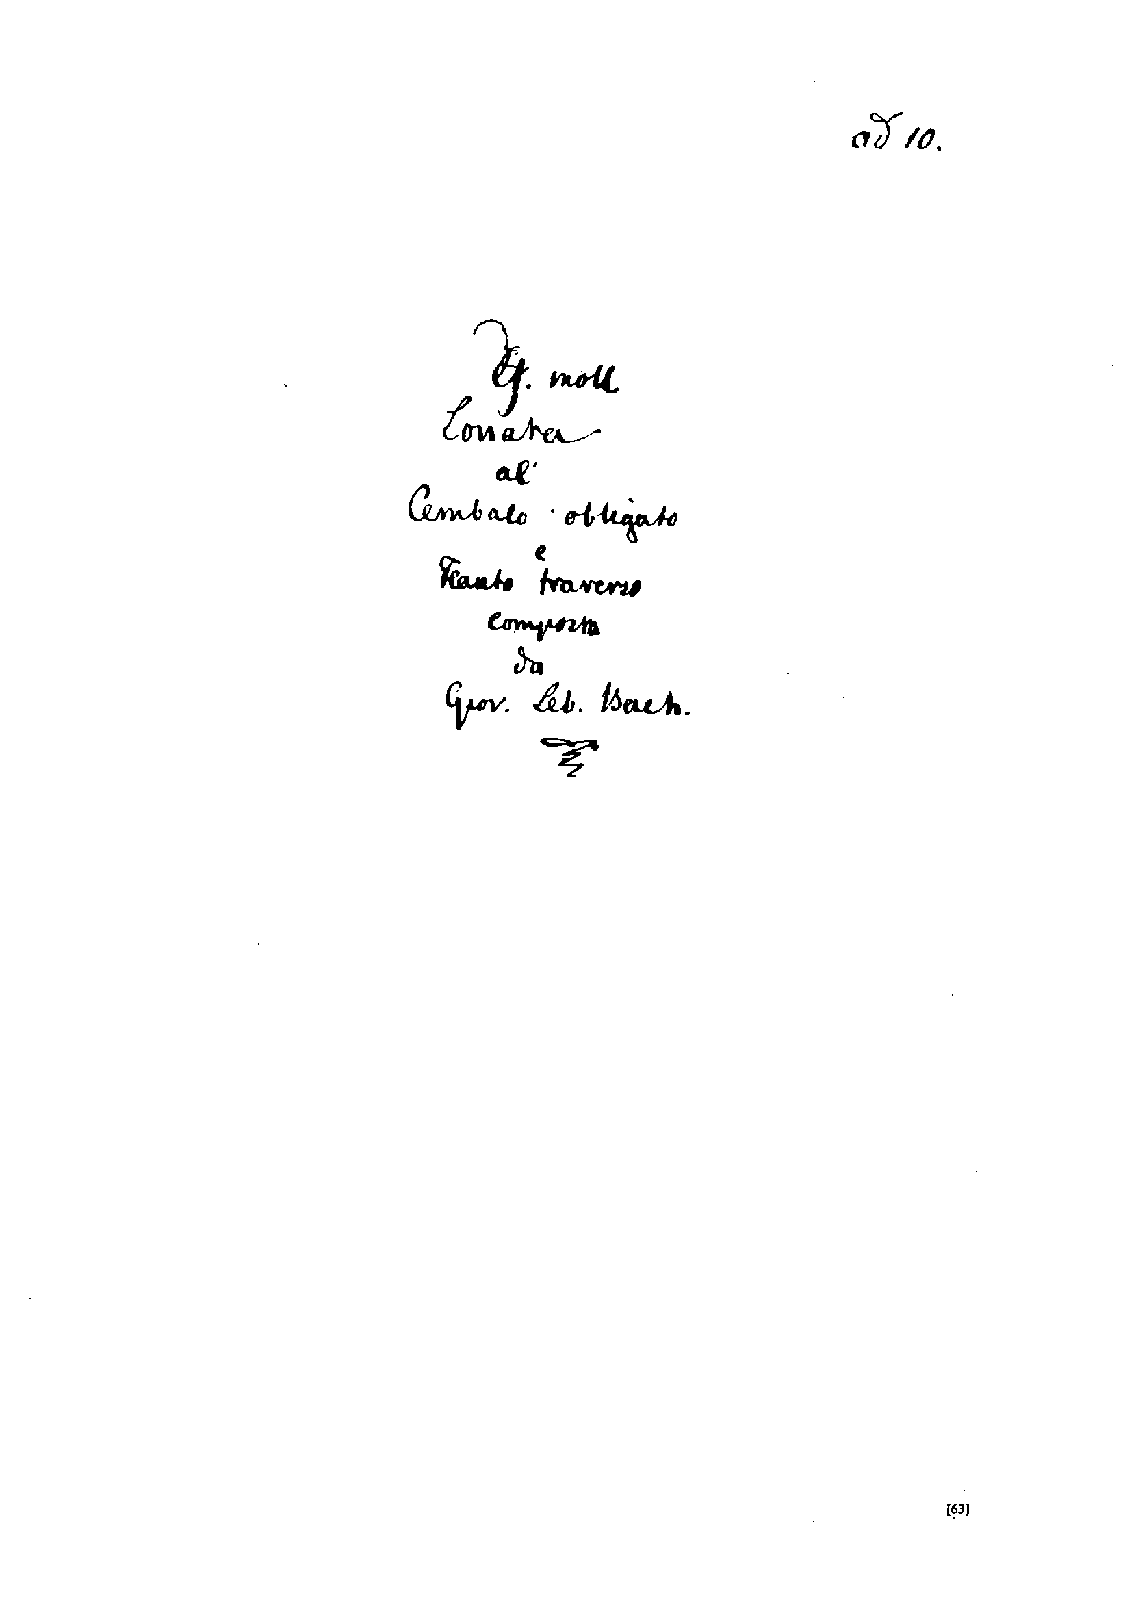 ad 10.
G. moll
Sonata
al'
Cembalo obligato
e
Flauto traverso
composta
da
Giov. Seb. Bach.
[63]